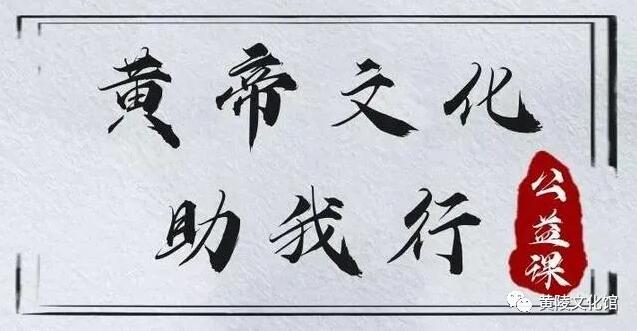 黄帝文化
助我行
公益课
黄陵文化馆